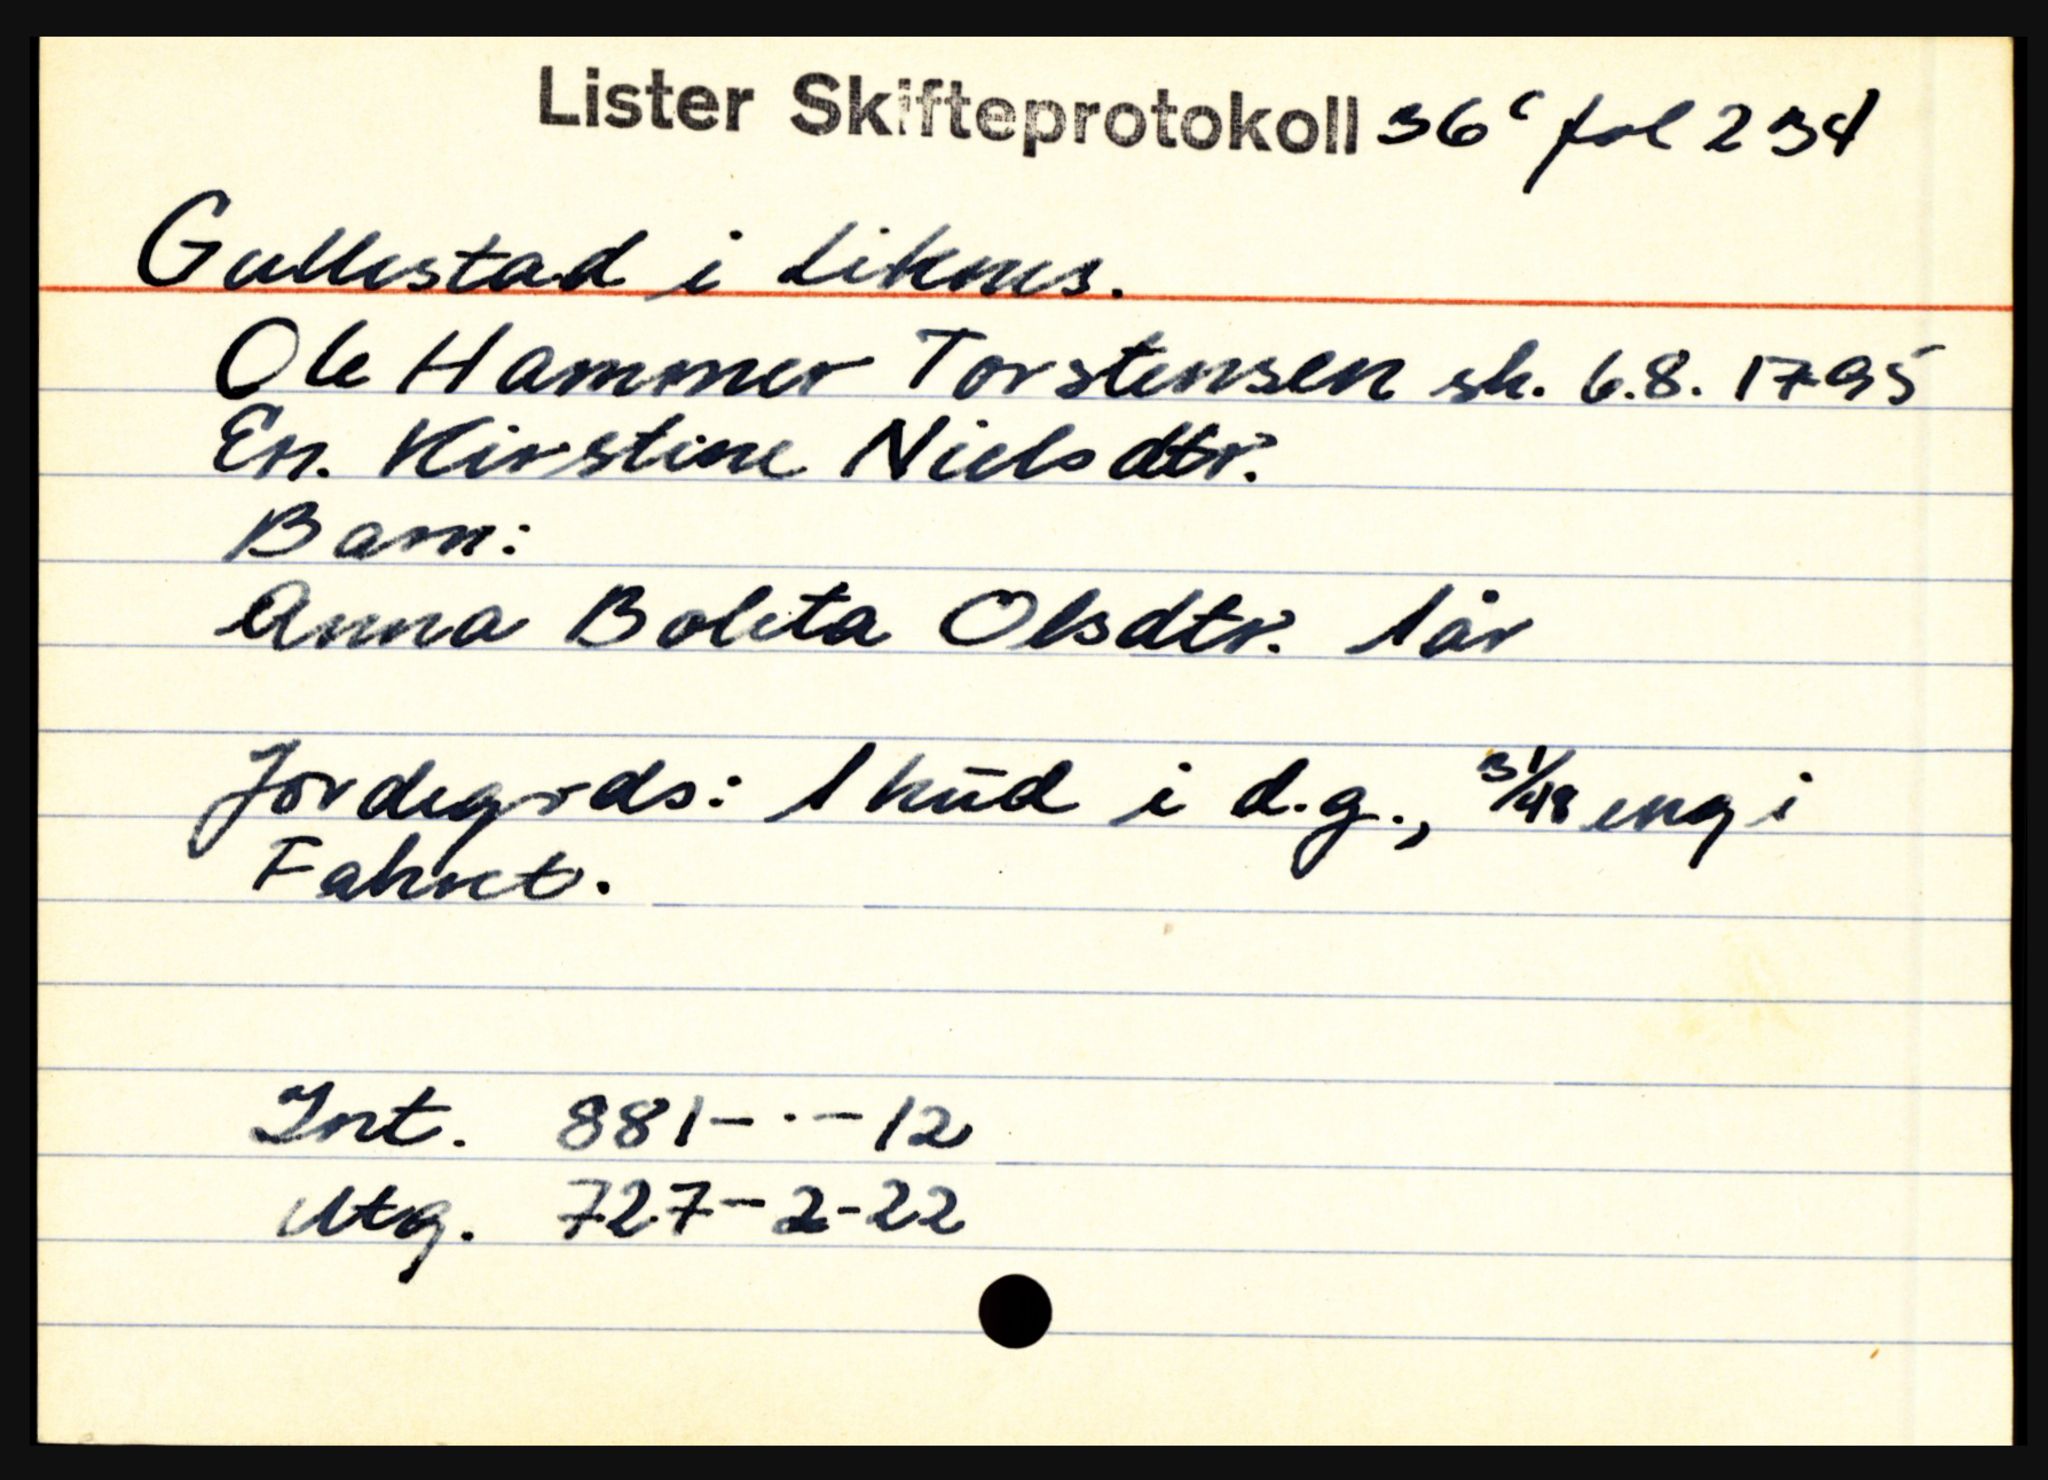 Lister Skifteprotokoll 36c fol 234
Gullestad i Liknes.
Ole Hammer Torstensen sk. 6.8. 1795
En. Kirstine Nielsdtr.
Barn:
Anna Boleta Olsdtr. 1 år
Jordegods: 1 hūd i d.g., 31/48 eng i
Fahret.
Int. 881-·-12
Utg. 727-2-22